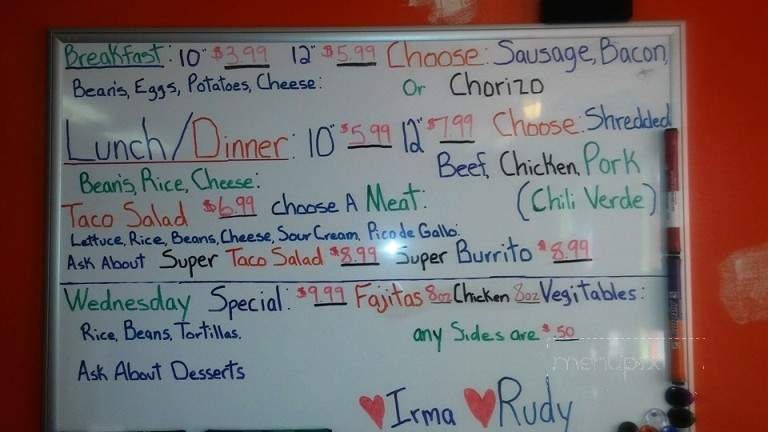 Breakfast: 10" $3.99 12" $5.99 Choose: Sausage, Bacon,
Beans, Eggs, Potatoes, Cheese: Or Chorizo
Lunch/Dinner: 10" $5.99 12" $7.99 Choose: Shredded
Beef, Chicken, Pork
Beans, Rice, Cheese:
(Chili Verde)
Taco Salad $6.99 choose A Meat:
Lettuce, Rice, Beans, Cheese, Sour Cream, Pico de Gallo.
Ask About Super Taco Salad $8.99 Super Burrito $8.99
Wednesday Special: $9.99 Fajitas 8oz Chicken 8oz Vegitables:
Rice, Beans, Tortillas. any Sides are $.50
Ask About Desserts
Irma Rudy
menupix